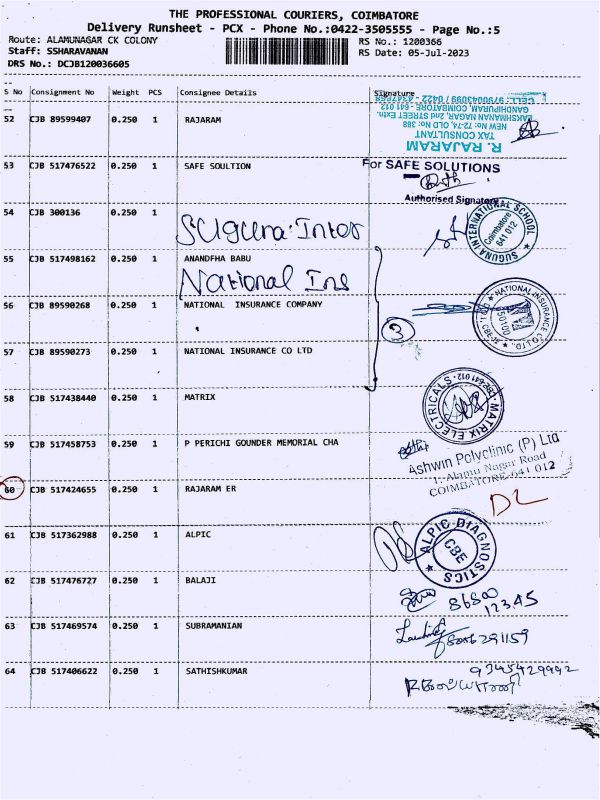 THE PROFESSIONAL COURIERS, COIMBATORE
Delivery Runsheet - PCX - Phone No.:0422-3505555 - Page No.:5
Route: ALAMUNAGAR CK COLONY
RS No.: 1200366
Staff: SSHARAVANAN
RS Date: 05-Jul-2023
DRS No.: DCJB120036605
S No Consignment No Weight PCS Consignee Details Signature
52 CJB 89599407 0.250 1 RAJARAM
R. RAJARAM
TAX CONSULTANT
NEW No: 72-74, OLD No: 388
LAKSHMANAN NAGAR, 2nd STREET Extn.
GANDHIPURAM, COIMBATORE - 641 012
53 CJB 517476522 0.250 1 SAFE SOULTION
For SAFE SOLUTIONS
Authorised Signatory
54 CJB 300136 0.250 1
Suguna Inter
SUGUNA INTERNATIONAL SCHOOL
Coimbatore
641 012
55 CJB 517498162 0.250 1 ANANDFHA BABU
National Ins
56 CJB 89590268 0.250 1 NATIONAL INSURANCE COMPANY
3
NATIONAL INSURANCE CO. LTD.
57 CJB 89590273 0.250 1 NATIONAL INSURANCE CO LTD
58 CJB 517438440 0.250 1 MATRIX
MATRIX ELECTRICALS
CBE-641 012
59 CJB 517458753 0.250 1 P PERICHI GOUNDER MEMORIAL CHA
Ashwin Polyclinic (P) Ltd
1, Alamu Nagar Road
COIMBATORE-641 012
60 CJB 517424655 0.250 1 RAJARAM ER
DL
61 CJB 517362988 0.250 1 ALPIC
ALPIC DIAGNOSTICS
CBE
62 CJB 517476727 0.250 1 BALAJI
86800
12345
63 CJB 517469574 0.250 1 SUBRAMANIAN
8086291159
64 CJB 517406622 0.250 1 SATHISHKUMAR
9345429992